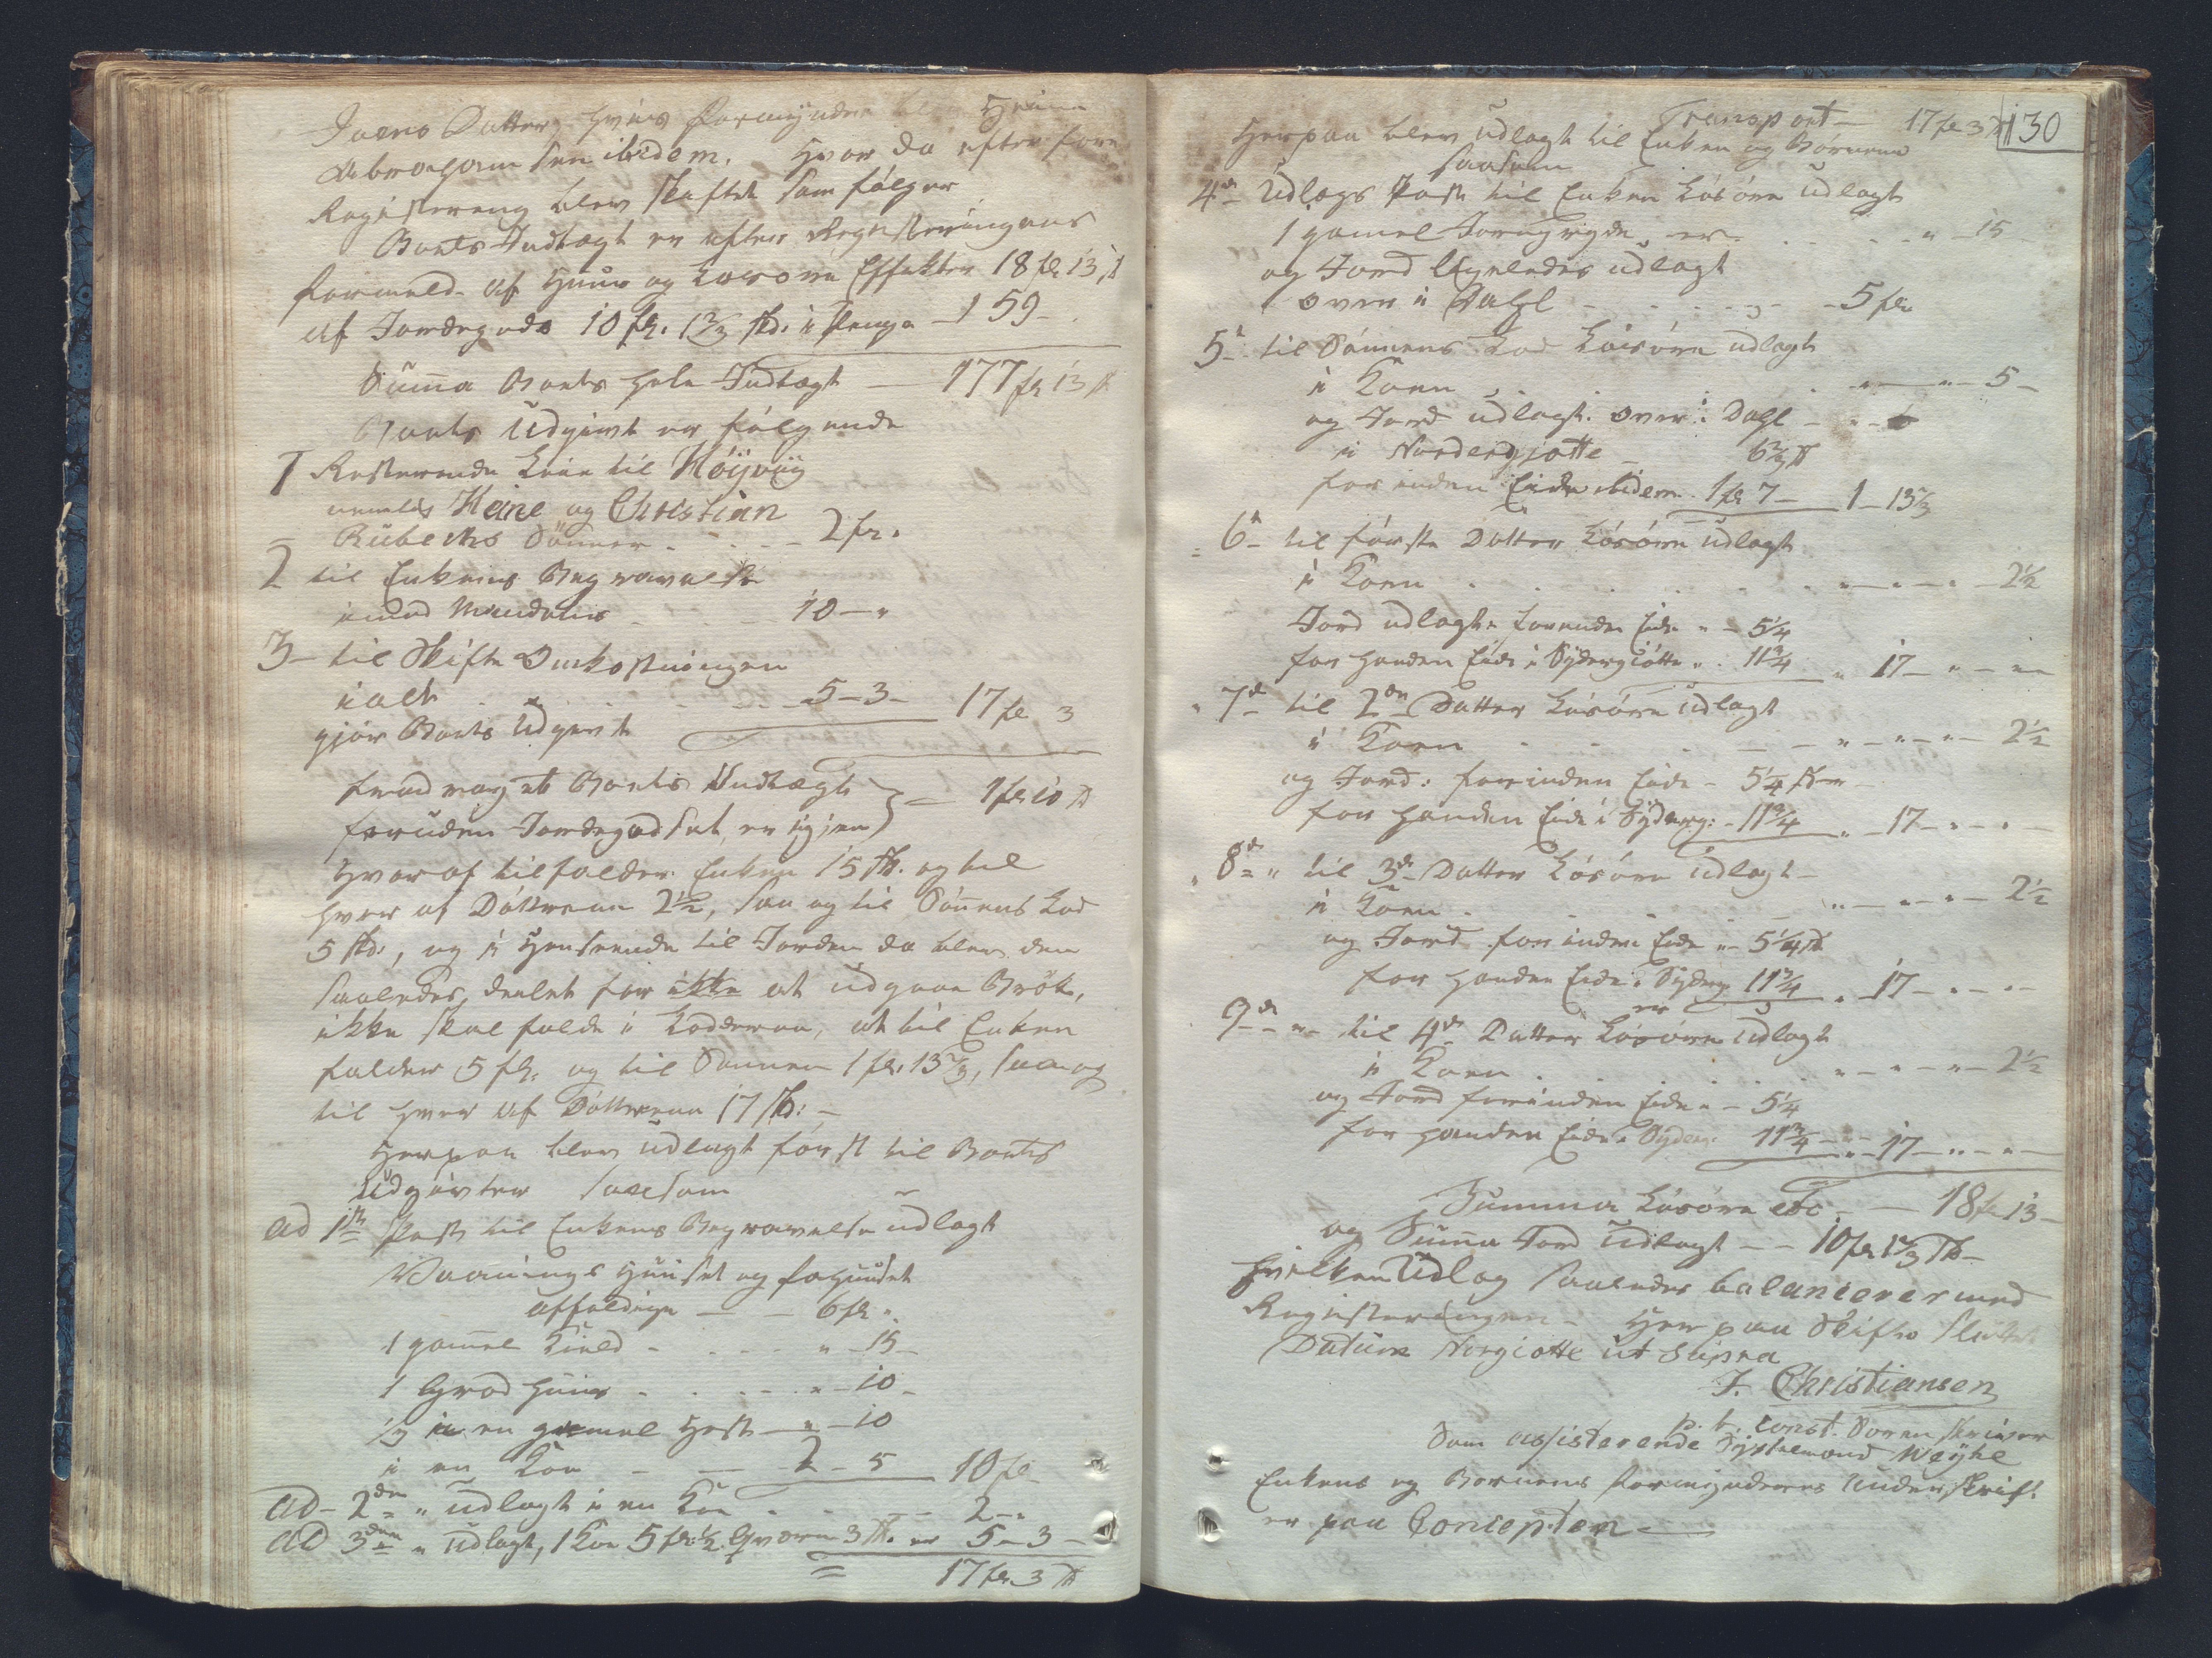 Joens Datter, hvis Formynder blev Heine
Abrahamsen ibidem. Hvor da efter fore
Registrering blev skiftet som følger
Boets Indtægt er efter Registreringens
Formeld. af Huus og Løsøre Effekter 18 fl 13 sk
af Jordegods 10 fl. 1⅔ sk. i Penge – 159 –
Suma Boets hele Indtægt – 177 fl 13 sk
Boets Udgivt er følgende
1 Resterende Leie til Høÿviig
Heine og Christian
Rübecks Sønner – 2 fl.
2 til Enkens Begravelse
imod Mandens – 10 – "
3 – til Skifte Omkostningen
i alt – 5 – 3 –
gjør Boets Udgivt 17 fl 3
fradraget Boets Indtægt
foruden Jordegodset, er igjen } – 1 fl 10 sk
Hvoraf tilfalder Enken 15 sk. og til
hver af Døttrene 2½, saa og til Sønnens Lod
5 sk., og i Henseende til Jorden da blev den
saaledes deelet for ikke at udgaae Brøk,
ikke skal falde i Lodderne, at til Enken
falder 5 fl. og til Sønnen 1 fl. 13⅔, saa og
til hver af Døttrene 17 sk: –
Herpaa blev udlagt først til Boets
Udgivter saasom
ad 1ste Post til Enkens Begravelse udlagt
Vaanings Huuset og Fæhuuset
affældige – – 6 fl. "
1 gamel Kield – " – 15 –
1 Grød huus – " – 10 –
½ i en gamel Hest – " – 10
i en Koe – 2 – 5 10 fl
ad – 2den " udlagt i en Koe – 2 – "
ad 3die " udlagt, 1 Koe 5 fl. ½ Qværn 3 sk. er 5 – 3 –
17 fl. 3 sk
130
Transport – 17 fl 3 sk
Herpaa blev udlagt til Enken og Børnene
saasom
4de Udlægs Post til Enken Løsøre udlagt
1 gamel Jerngryde er – " – 15
og Jord ligeledes udlagt
over i Dahl – 5 fl.
5te til Sønnens Lod Løsøre udlagt
i Koen – " – " – 5 –
og Jord udlagt over i Dahl
i Nordergjotte – 6⅔ sk
for inden Eide ibidem. 1 fl 7 – 1 – 13⅔
6te til første Datter Løsøre udlagt
i Koen – " – " – 2½
Jord udlagt forinden Eide " – 5¼
for handen Eide i Sydergiøtte " 11¾ " 17 – " – " –
7de til 2den Datter Løsøre udlagt
i Koen – " – " – " – 2½
og Jord: forinden Eide – 5¼ sk –
for handen Eide i Syderg: – 11¾ " – 17 – " – "
8de " til 3de Datter Løsøre udlagt –
i Koen – " – " – " – 2½
og Jord for inden Eide " – 5¼ sk
for handen Eide i Syderg: 11¾ " – 17 – " – " –
er
9de " – til 4de Datter Løsøre udlagt
i Koen – " – " – " – 2½
og Jord forinden Eide " – 5¼
for handen Eide i Syder: 11¾ – " – 17 – " – " –
Summa Løsøre etc. – – 18 fl 13 –
og Suma Jord udlagt – – 10 fl 1⅔ sk –
hvilken Udlog saaledes balancerer med
Registeringen – Her paa Skifte sluttet
Datum Norgiotte ut Supra
J. Christiansen
p. t. const. Sorenskriver
Som assisterende Sÿsselmand Weÿhe
Enkens og Børnenes Formynderes Underskrift
er paa Concepten –